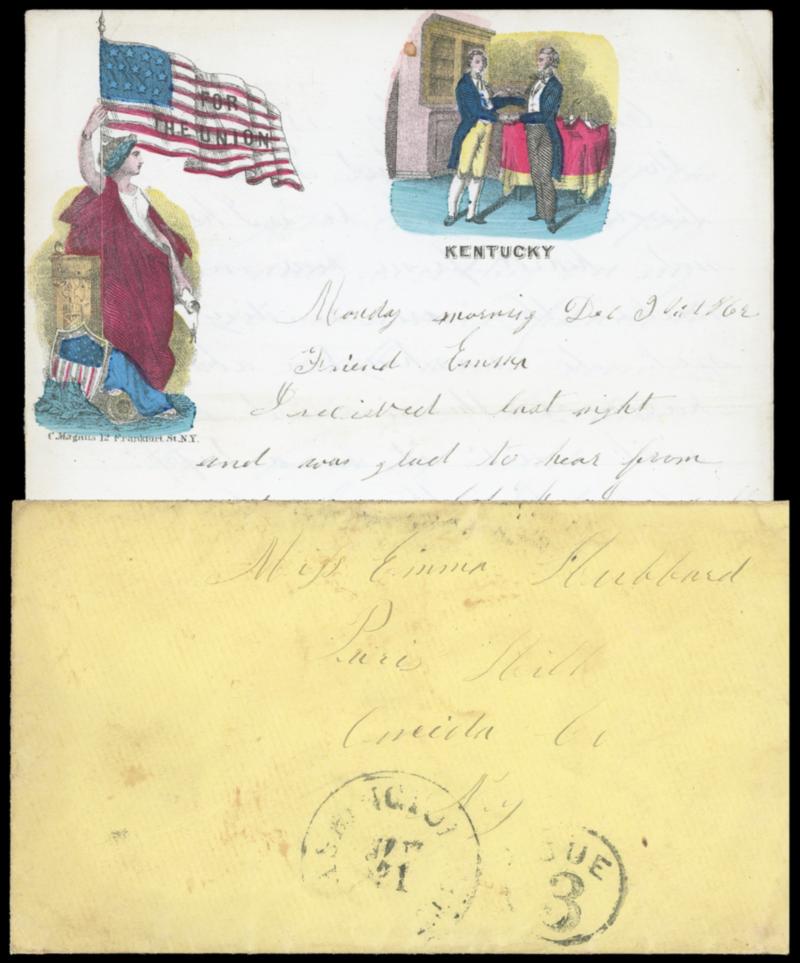 FOR
THE UNION
KENTUCKY
C. Magnus 12 Frankfort St. N.Y.
Monday morning Dec 1862
Friend Emma
I recieved last night
and was glad to hear from
Miss Emma Hubbard
Paris Hill
Oneida Co
N,y
WASHINGTON
31
DUE
3